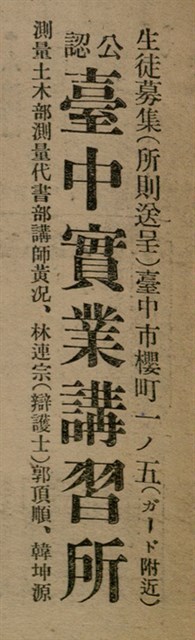 生徒募集(所則送呈)臺中市櫻町一ノ五(ガード附近)
公認臺中實業講習所
測量土木部測量代書部講師黃況、林連宗(辯護士)郭頂順、韓坤源